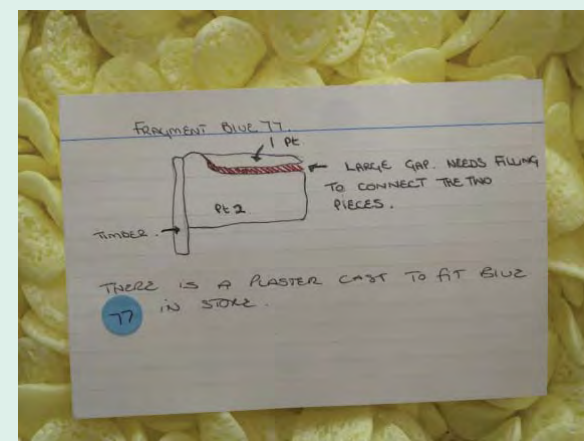 FRAGMENT BLUE 77.
1 Pt.
LARGE GAP. NEEDS FILLING
TO CONNECT THE TWO
PIECES.
Pt 2
TIMBER.
THERE IS A PLASTER CAST TO FIT BLUE
77 IN STORE.